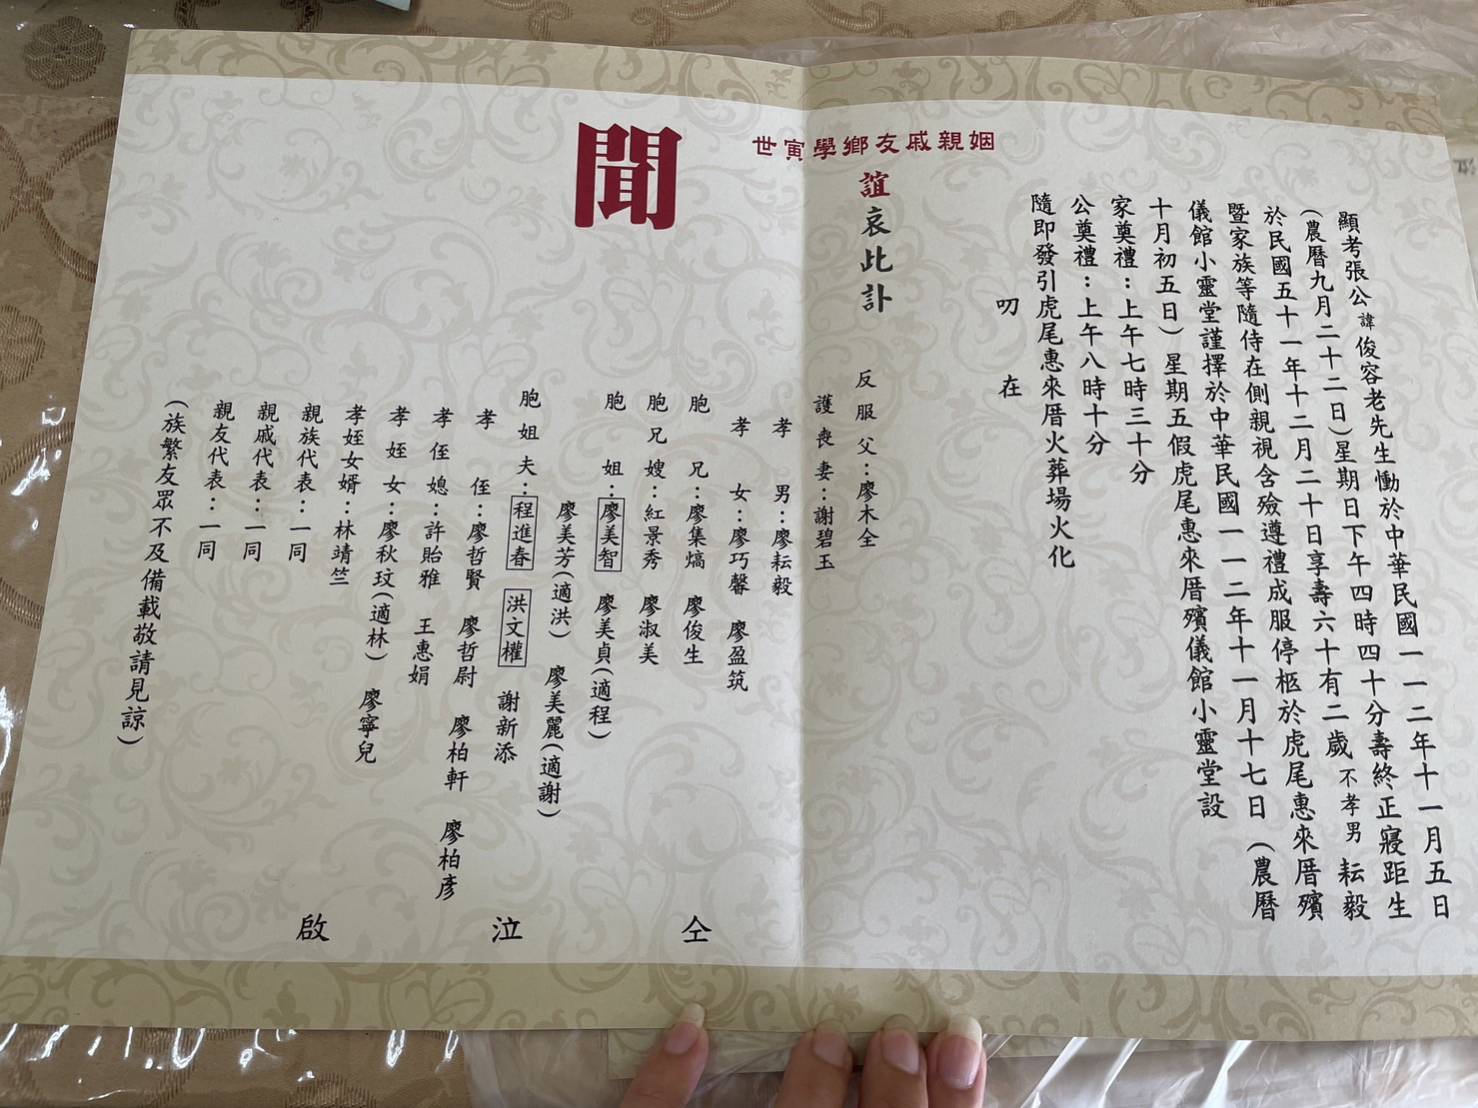 顯考張公諱俊容老先生慟於中華民國一一二年十一月五日
(農曆九月二十二日)星期日下午四時四十分壽終正寢距生
於民國五十一年十二月二十日享壽六十有二歲不孝男耘毅
暨家族等隨侍在側親視含殮遵禮成服停柩於虎尾惠來厝殯
儀館小靈堂謹擇於中華民國一一二年十一月十七日(農曆
十月初五日)星期五假虎尾惠來厝殯儀館小靈堂設
家奠禮:上午七時三十分
公奠禮:上午八時十分
隨即發引虎尾惠來厝火葬場火化
叨在
姻親戚友鄉學寅世
誼哀此訃
聞
反服父:廖木全
護喪妻:謝碧玉
孝男:廖耘毅
孝女:廖巧馨 廖盈筑
胞兄:廖集熇 廖俊生
胞兄嫂:紅景秀 廖淑美
胞姐:廖美智 廖美貞(適程)
廖美芳(適洪) 廖美麗(適謝)
胞姐夫:程進春 洪文權 謝新添
孝侄:廖哲賢 廖哲尉 廖柏軒 廖柏彥
孝侄媳:許貽雅 王惠娟
孝姪女:廖秋玟(適林) 廖寧兒
孝姪女婿:林靖竺
親族代表:一同
親戚代表:一同
親友代表:一同
(族繁友眾不及備載敬請見諒)
仝泣啟